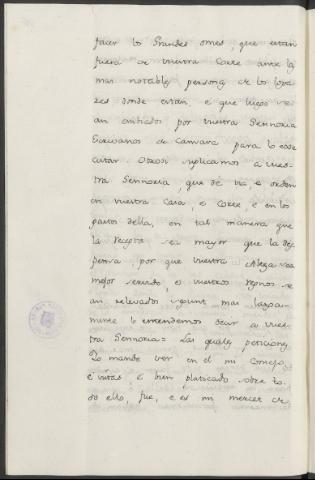 facer los Grandes omes, que estan
fuera de vuestra Corte ante la
mas notable persona de los loga
res donde están, é que luego se
an enbiados por vuestra Sennoria
Escrivanos de Camara para lo exse
cutar. Otrosi suplicamos a vues-
tra Sennoria, que dé via e orden
en vuestra Casa, e Corte e en los
gastos della, en tal manera que
la recepta sea mayor que la des
pensa, por que vuestra Alteza sea
mejor servido e vuestros regnos se
an relevados segunt mas larga-
mente lo entendemos decir a vues-
tra Sennoria= Las quales peticiones
Yo mandé ver en el mi Consejo,
é vistas é bien platicado sobre to-
do ello, fue, e es mi merced de